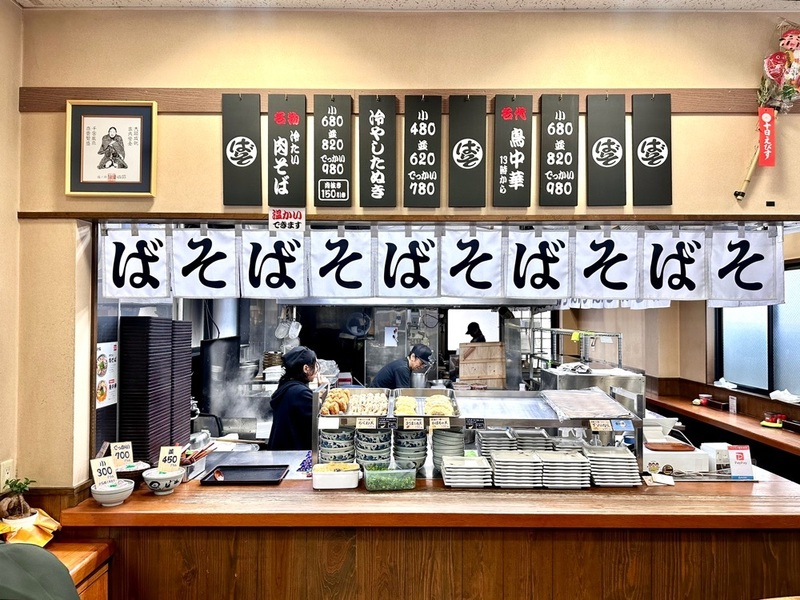 名物
冷たい
肉そば
小
680
並
820
でっかい
980
肉抜き
150引き
冷やしたぬき
小
480
並
620
でっかい
780
名代
鳥中華
13時から
小
680
並
820
でっかい
980
温かい
できます
ば そ ば そ ば そ ば そ ば そ
十日えびす
でっかい
700
小
300
並
450